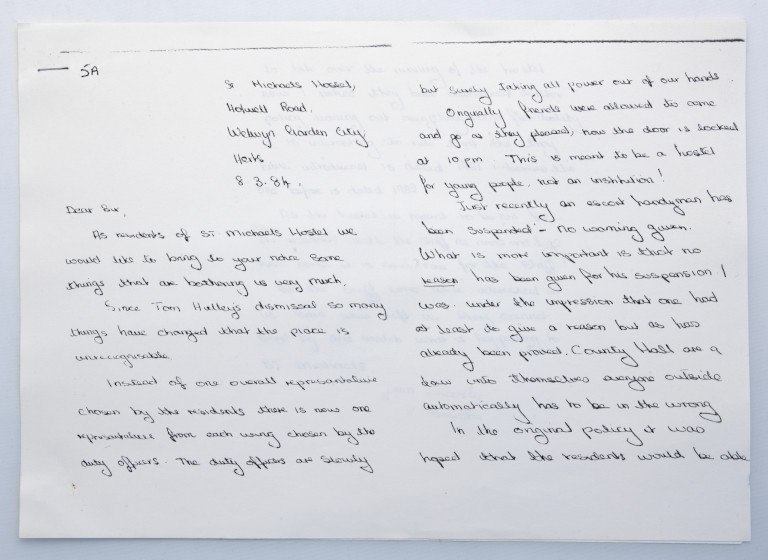 5A
St Michaels Hostel,
Holwell Road,
Welwyn Garden City
Herts
8.3.84.
Dear Sir,
As residents of St Michaels Hostel we
would like to bring to your notice some
things that are bothering us very much.
Since Tom Hulley's dismissal so many
things have changed that the place is
unrecognisable
Instead of one overall representative
chosen by the residents there is now one
representative from each wing chosen by the
duty officers. The duty officers are slowly
but surely taking all power out of our hands.
Originally friends were allowed to come
and go as they pleased, now the door is locked
at 10pm This is meant to be a hostel
for young people, not an institution!
Just recently an escort handyman has
been suspended - no warning given.
What is more important is that no
reason has been given for his suspension I
was under the impression that one had
at least to give a reason but as has
already been proved. County Hall are a
law unto themselves everyone outside
automatically has to be in the wrong
In the original policy it was
hoped that the residents would be able